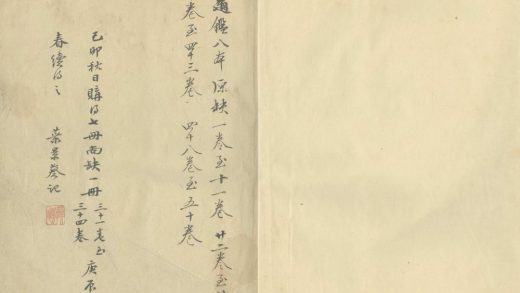 通鑑八本原缺一卷至十一卷 廿二卷至
卷至四十三卷 四十八卷至五十卷
己卯秋日購得七冊尚缺一冊 三十一卷至
三十四卷
庚辰
春續得之 葉景葵記